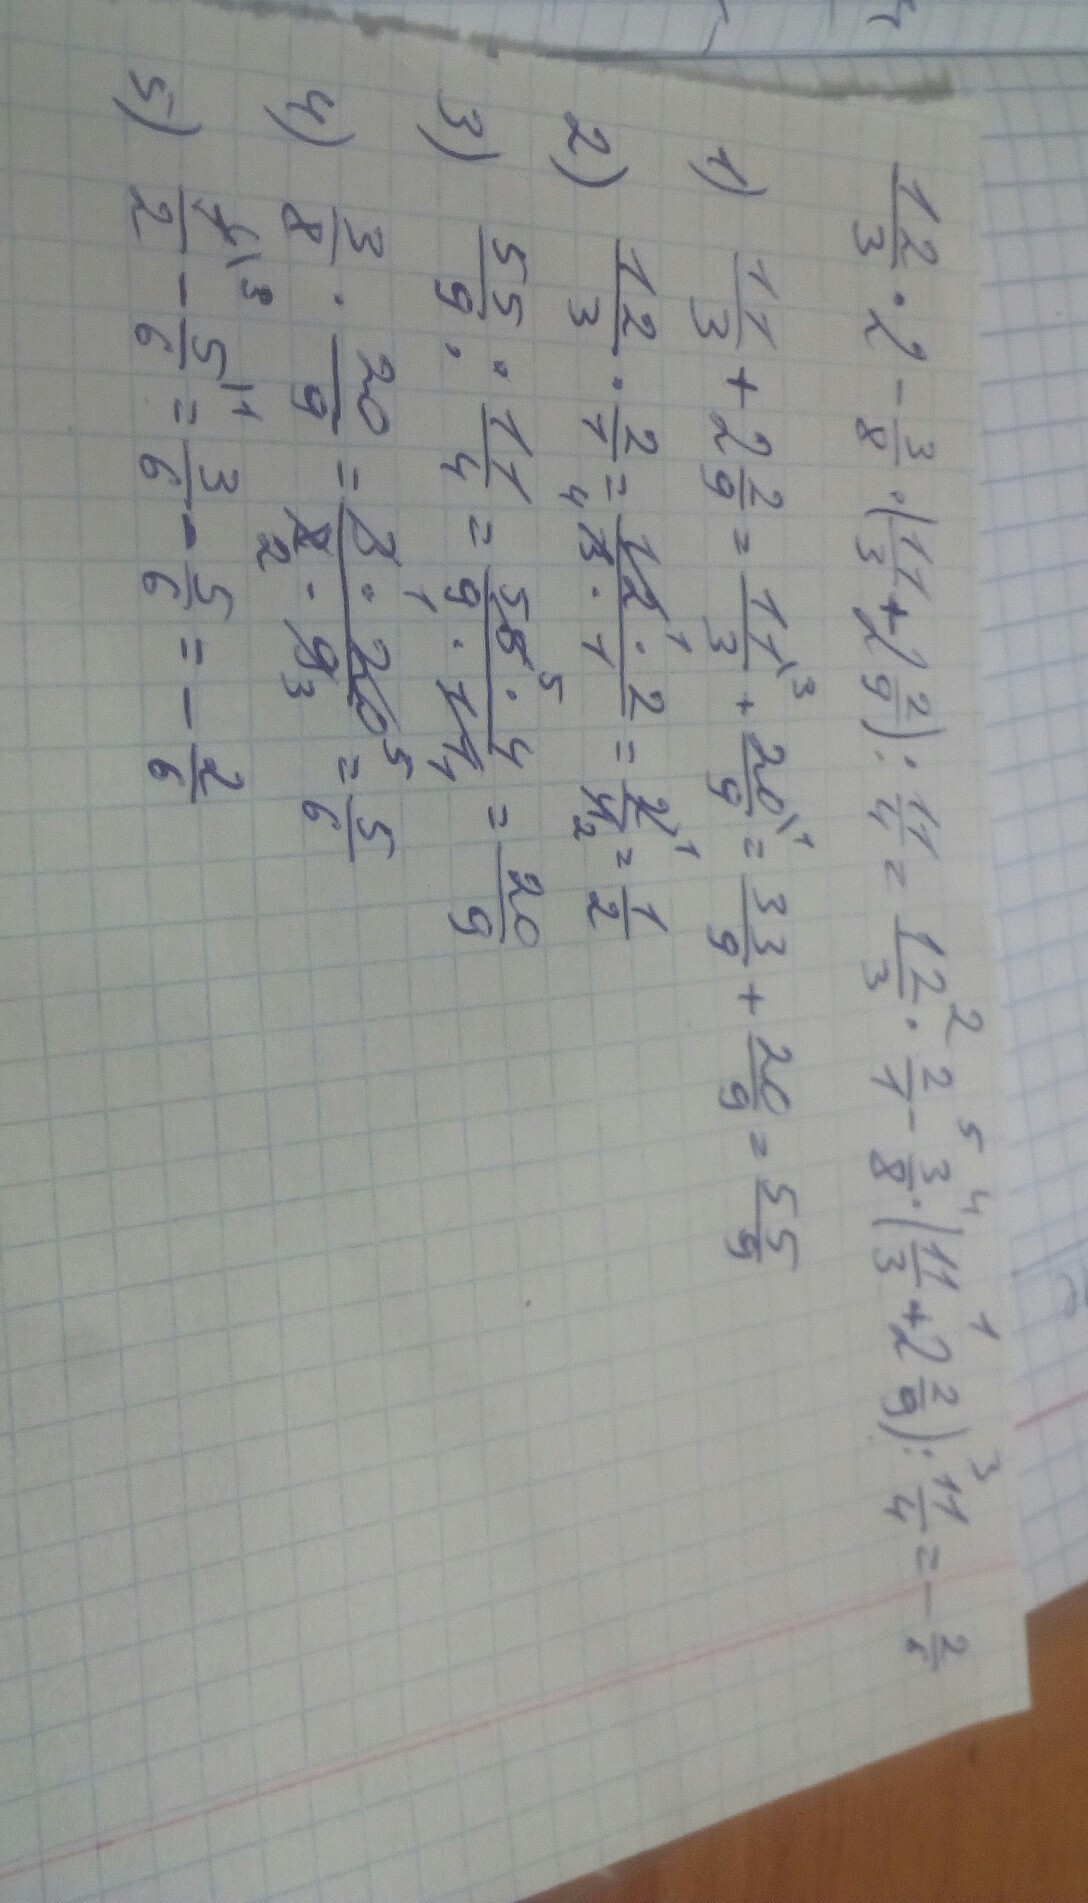 2 5 4 1 3
12/3 · 2 - 3/8 · (11/3 + 2 2/9) : 11/4 = 12/3 · 2/1 - 3/8 · (11/3 + 2 2/9) : 11/4 = - 2/6
1) 11/3 + 2 2/9 = 11\3/3 + 20\1/9 = 33/9 + 20/9 = 55/9
2) 12/3 · 2/1 = 12 1 · 2/4 3 · 1 = 2 1/4 2 = 1/2
3) 55/9 : 11/4 = 55 5 · 4/9 · 11 1 = 20/9
4) 3/8 · 20/9 = 3 1 · 20 5/8 2 · 9 3 = 5/6
5) 1\3/2 - 5\1/6 = 3/6 - 5/6 = - 2/6